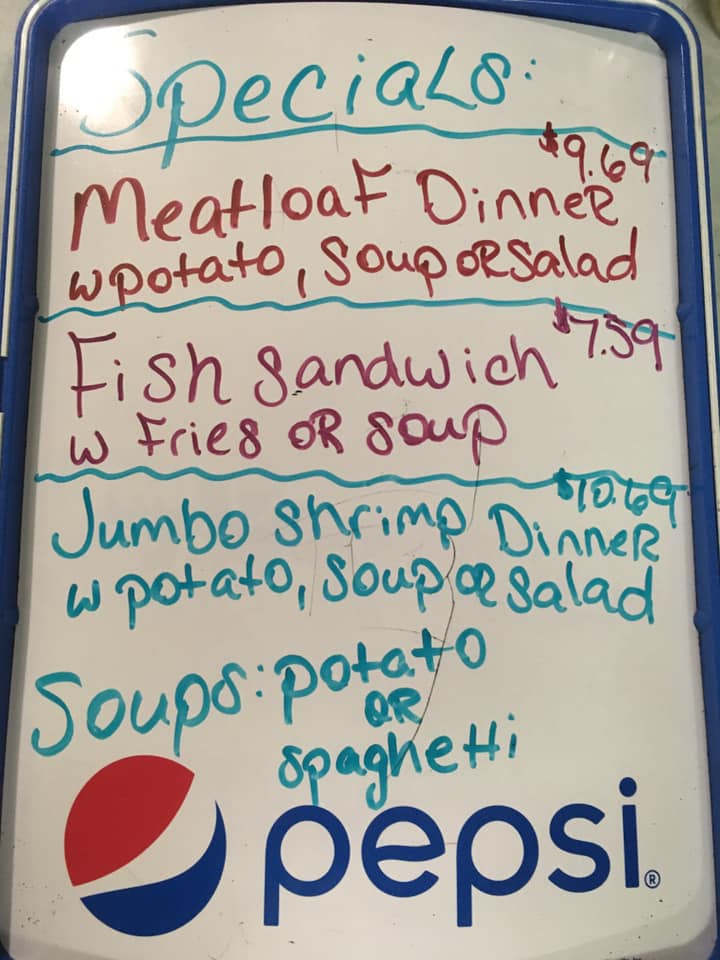 Specials:
$9.69
Meatloaf Dinner
w potato, Soup or Salad
$7.59
Fish Sandwich
w Fries or Soup
$10.69
Jumbo Shrimp Dinner
w potato, Soup or Salad
Soups: potato
or
spaghetti
pepsi®